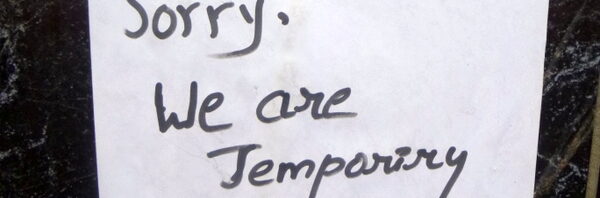 Sorry.
We are
Temporiry